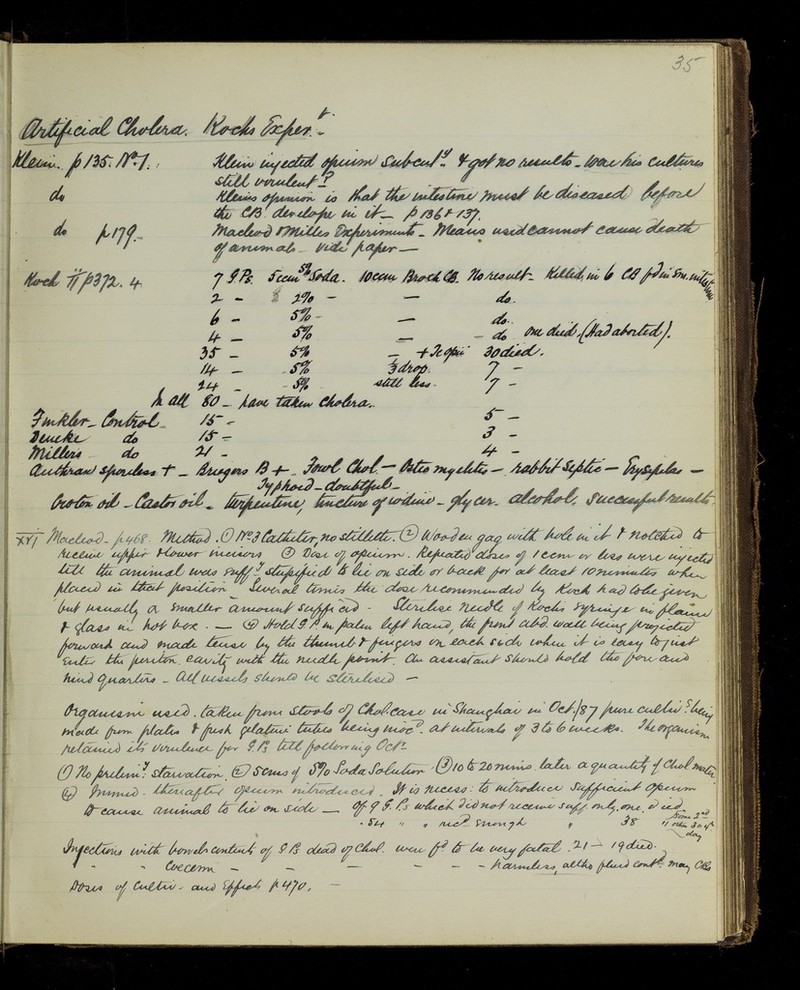 35
Artificial Cholera. Kochs Exper.t
Klein. p 135. No 1. Klein injected opium subcut.y & got no results - were his cultures
still virulent?
do Kleins opinion is that the intestine must be diseased before
the CB develope in it - p 136 & 137.
do p 179. Macleod & Milles Experiments - Means used cannot cause death
of animals - vide paper -
Koch II p 372. 4 7 G.Ps. 5ccm 5% Soda. 10ccm Broth CB. No result - Killed, in 6 CB f.d in Sm. intestine
2 - 2% - - do.
6 - 5% - - do.
4 - 5% - - do One died, (Had aborted).
35 - 5% - + Tc opii 30 died.
14 - 5% 3 drop. 7 -
24 - 5% still less. 7 -
In all 80 - have taken cholera.
Finkler - Control 15 - 5 -
Deneke do 15 - 3 -
Millers do 21 - 4 -
Anthrax sporeless + - Briegers B + - Fowl Chol. - Osteo myelites - rabbit Septic - Erysipelas -
Typhoid - doubtful -
Croton oil - Castor oil - turpentine, tincture of iodine - glycer. alcohol. successful results.
XVI Macleod - p 468. Method. (1) No 3 Catheter, no stillette. (2) Wooden gag with hole in it & notched to
receive upper & lower incisors (3) Dose of opium. Repeated doses of 1 ccm or less were injected
till the animal was suff.y stupified to lie on side or back for at least 10 minutes when
placed in that position - Several times the dose recommended by Koch had to be given
but usually a smaller amount sufficed - Sterilise needle of Kochs syringe in flame
& glass in hot box. - (4) Hold G.P. in palm left hand, the front abd wall being projected
forward and made tense by the thumb & fingers on each side when it is easy to just
enter the periton. cavity with the needle point. An assistant should hold the fore and
hind quarters - All vessels should be sterilised -
Organism used. taken from stools of Chol. case in Shanghai in Oct./87 pure cultiv.s being
made from plates & fresh gelatine tubes being inoc.d at intervals of 3 to 6 weeks. The organism
retained its virulence for G.Ps till following Oct.
(1) No prelim.y starvation. (2) 5 cms of 5% Soda Solution (3) 10 to 20 mins. later a quantity of Chol. mater.
(4) Immed. thereafter opium introduced. It is necess: to introduce sufficient opium
to cause animal to lie on side - Of 9 G.Ps which did not receive suff only, one, died
. 54 " " rec.d enough " 38 some 2nd
" others 3 or 4th
day
Injections with bowel contents of G.Ps dead of Chol. were f.d to be very fatal. 21 - 19 died.
" " Coecum - - - - - - harmless, altho fluid cont.d many CBs
Doses of cultiv. and Effects p 470. -